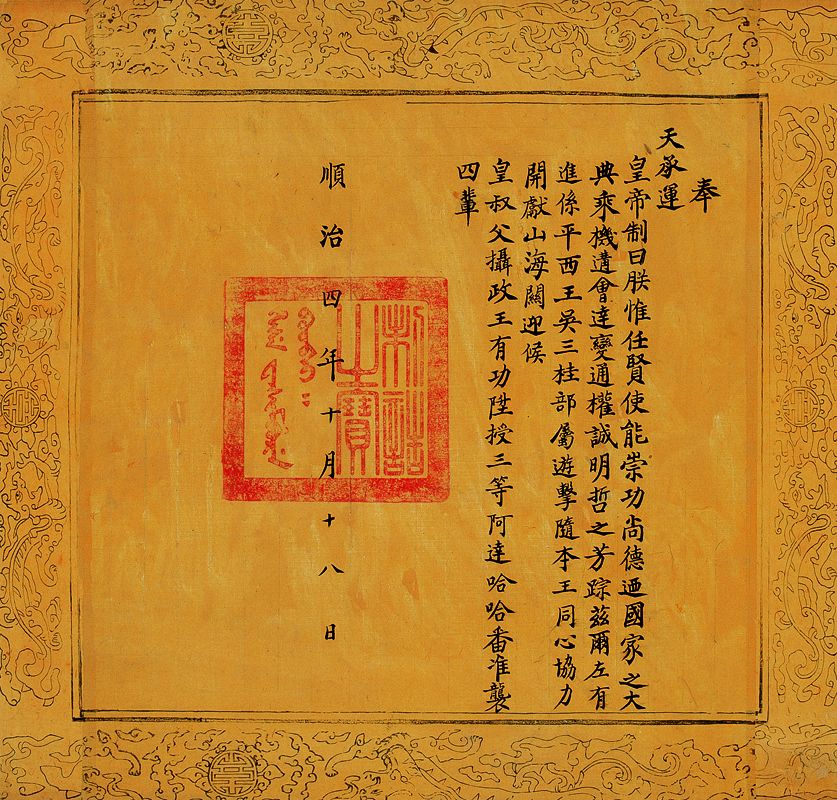 奉
天承運
皇帝制曰朕惟任賢使能崇功尚德迺國家之大
典乘機遘會達變通權誠明哲之芳踪茲爾左有
進係平西王吳三桂部屬遊擊隨本王同心協力
開獻山海關迎候
皇叔父攝政王有功陞授三等阿達哈哈番准襲
四輩
順治四年十月十八日
制誥之寶